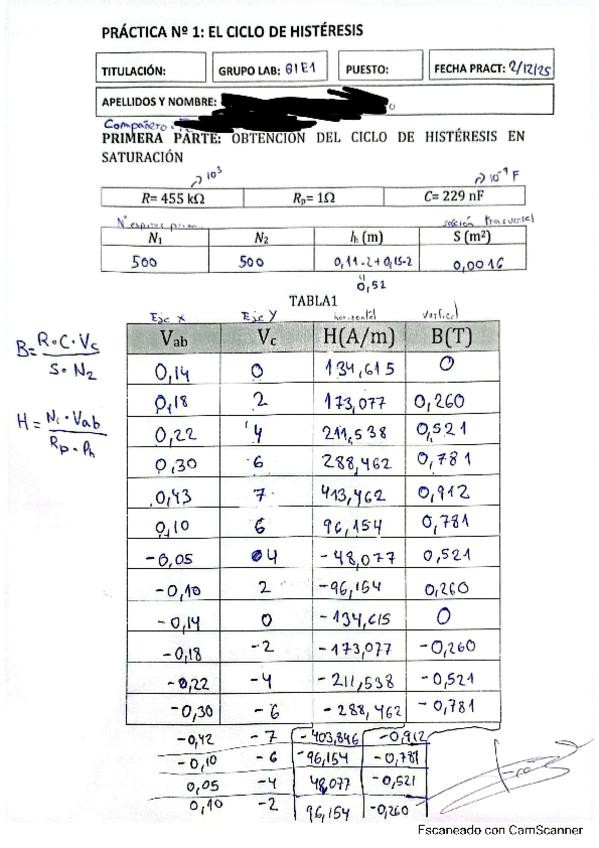 PRÁCTICA Nº 1: EL CICLO DE HISTÉRESIS
TITULACIÓN: GRUPO LAB: G1E1 PUESTO: FECHA PRACT: 2/12/25
APELLIDOS Y NOMBRE:
Compañero:
PRIMERA PARTE: OBTENCIÓN DEL CICLO DE HISTÉRESIS EN
SATURACIÓN
→ 10³ → 10⁻⁹ F
R= 455 kΩ Rp= 1Ω C= 229 nF
Nº espiras prim. sección trasversal
N₁ N₂ lh (m) S (m²)
500 500 0,11·2+0,15·2 0,0016
0,52
TABLA1
Eje X Eje Y horizontal vertical
Vab Vc H(A/m) B(T)
B= R·C·Vc / S·N2
H= N1·Vab / Rp·lh
0,14 0 134,615 0
0,18 2 173,077 0,260
0,22 4 211,538 0,521
0,30 6 288,462 0,781
0,43 7 413,462 0,912
0,10 6 96,154 0,781
-0,05 4 -48,077 0,521
-0,10 2 -96,154 0,260
-0,14 0 -134,615 0
-0,18 -2 -173,077 -0,260
-0,22 -4 -211,538 -0,521
-0,30 -6 -288,462 -0,781
-0,42 -7 -403,846 -0,912
-0,10 -6 -96,154 -0,781
0,05 -4 48,077 -0,521
0,10 -2 96,154 -0,260
Escaneado con CamScanner